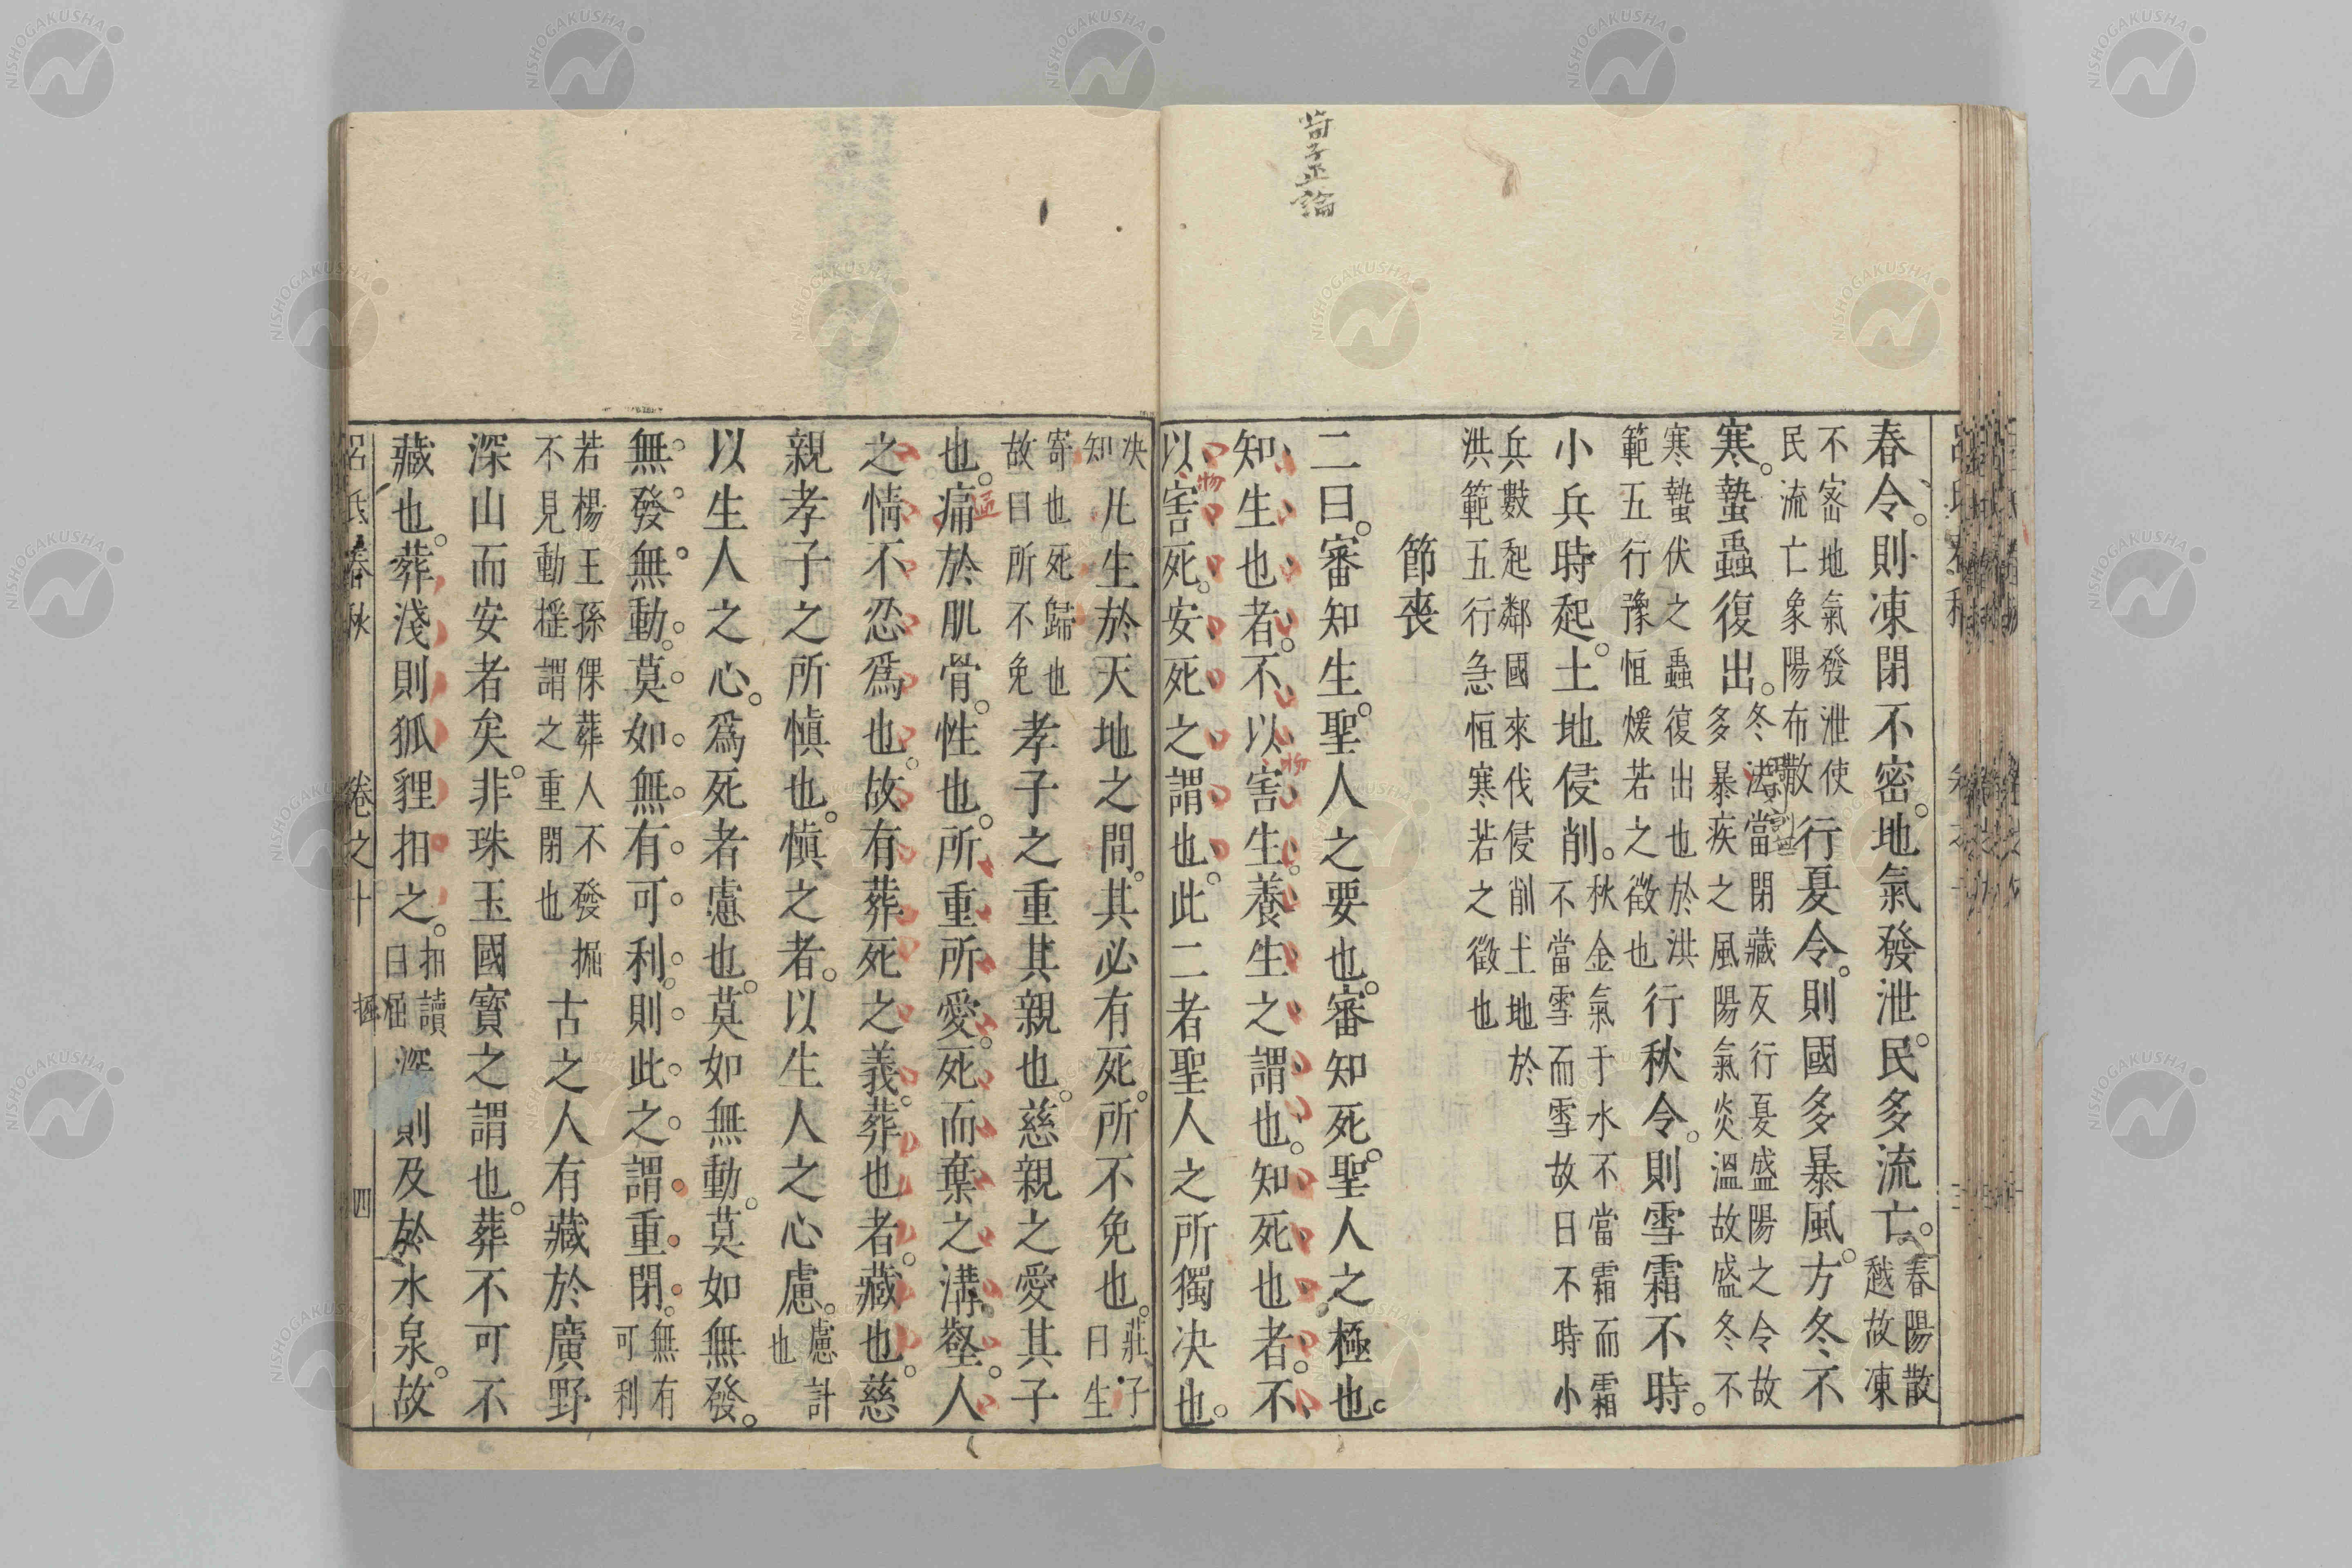 荀子正論
春令。則凍閉不密。地氣發泄。民多流亡。春陽散越故凍
不密地氣發泄使民流亡象陽布散行夏令。則國多暴風。方冬不
寒。蟄蟲復出。冬法當閉藏反行夏盛陽之令故多暴疾之風陽氣炎溫故盛冬不
寒蟄伏之蟲復出也於洪範五行豫恒煖若之徵也行秋令。則雪霜不時。
小兵時起。土地侵削。秋金氣于水不當霜而霜不當雪而雪故曰不時小
兵數起鄰國來伐侵削土地於洪範五行急恒寒若之徵也
節喪
二曰。審知生。聖人之要也。審知死。聖人之極也。
知生也者。不以害生。養生之謂也。知死也者。不
以害死。安死之謂也。此二者聖人之所獨决也。
物
物
决知凡生於天地之間。其必有死。所不免也。莊子曰生
寄也死歸也故曰所不免孝子之重其親也。慈親之愛其子
也。痛於肌骨。性也。所重所愛。死而棄之溝壑。人
之情不忍爲也。故有葬死之義。葬也者。藏也。慈
親孝子之所愼也。愼之者。以生人之心慮。慮計也
以生人之心。爲死者慮也。莫如無動。莫如無發。
無發無動。莫如無有可利。則此之謂重閉。無有可利
若楊王孫倮葬人不發掘不見動搖謂之重閉也古之人有藏於廣野
深山而安者矣。非珠玉國寶之謂也。葬不可不
藏也。葬淺則狐貍抇之。抇讀曰掘深則及於水泉。故
呂氏春秋 卷之十 四